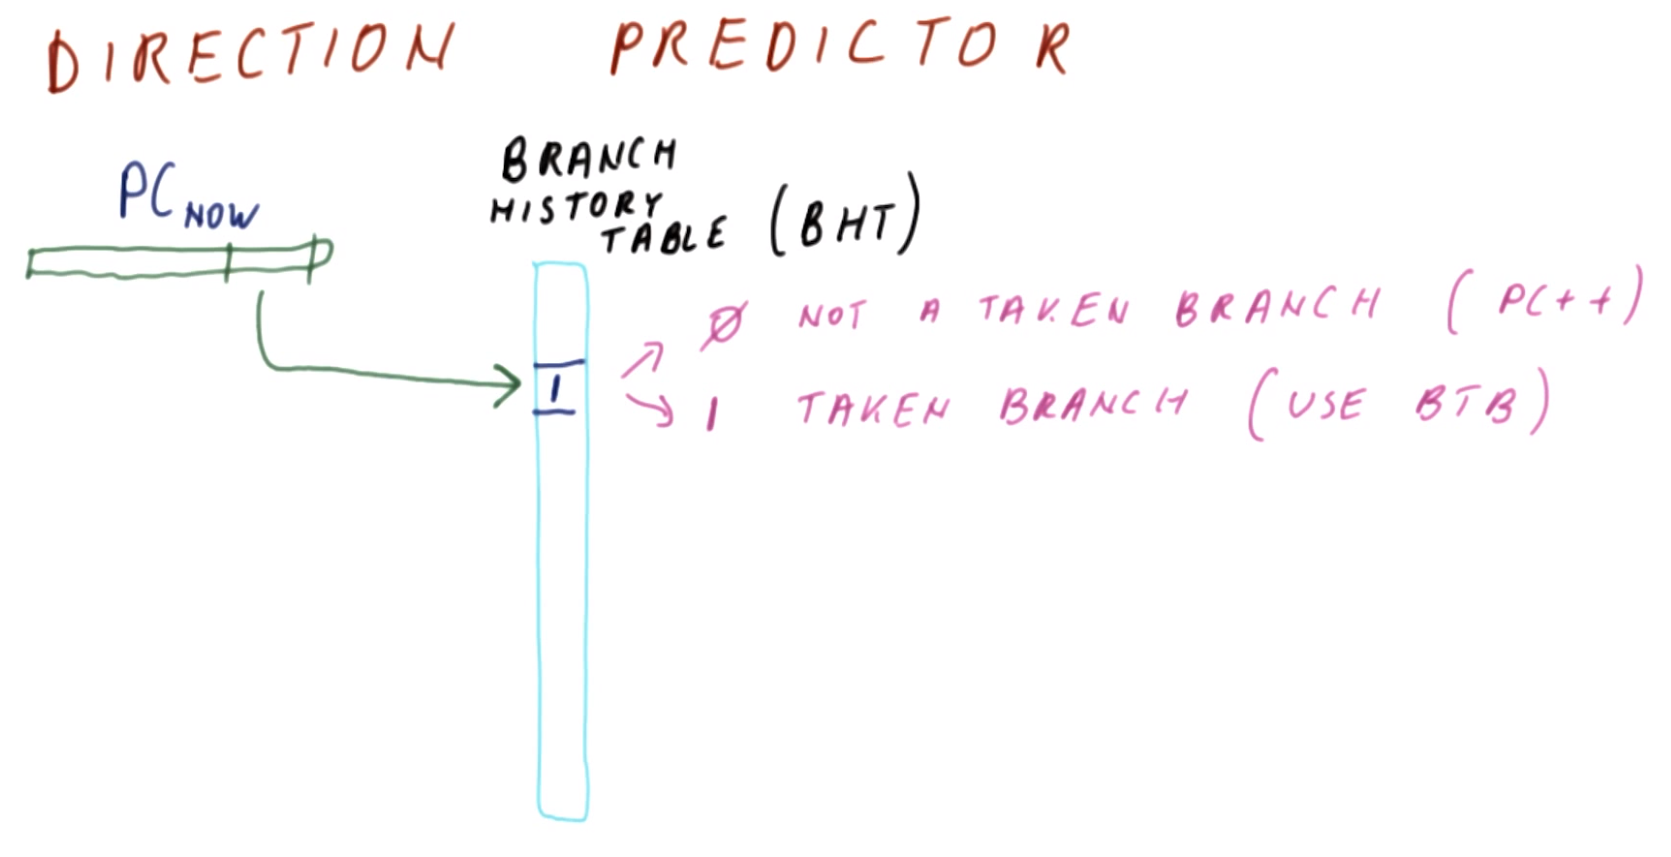 DIRECTION PREDICTOR
PC NOW
BRANCH
HISTORY
TABLE (BHT)
Ø NOT A TAKEN BRANCH (PC++)
1
1 TAKEN BRANCH (USE BTB)